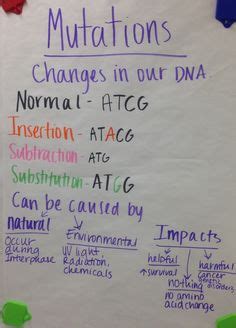 Mutations
Changes in our DNA.
Normal - ATCG
Insertion - ATACG
Subtraction - ATG
Substitution - ATGG
Can be caused by
natural
Occur
during
Interphase
Environmental
UV light,
Radiation,
chemicals
Impacts
helpful
↑ survival
nothing
no amino
acid change
harmful
Cancer
genetic
disorders